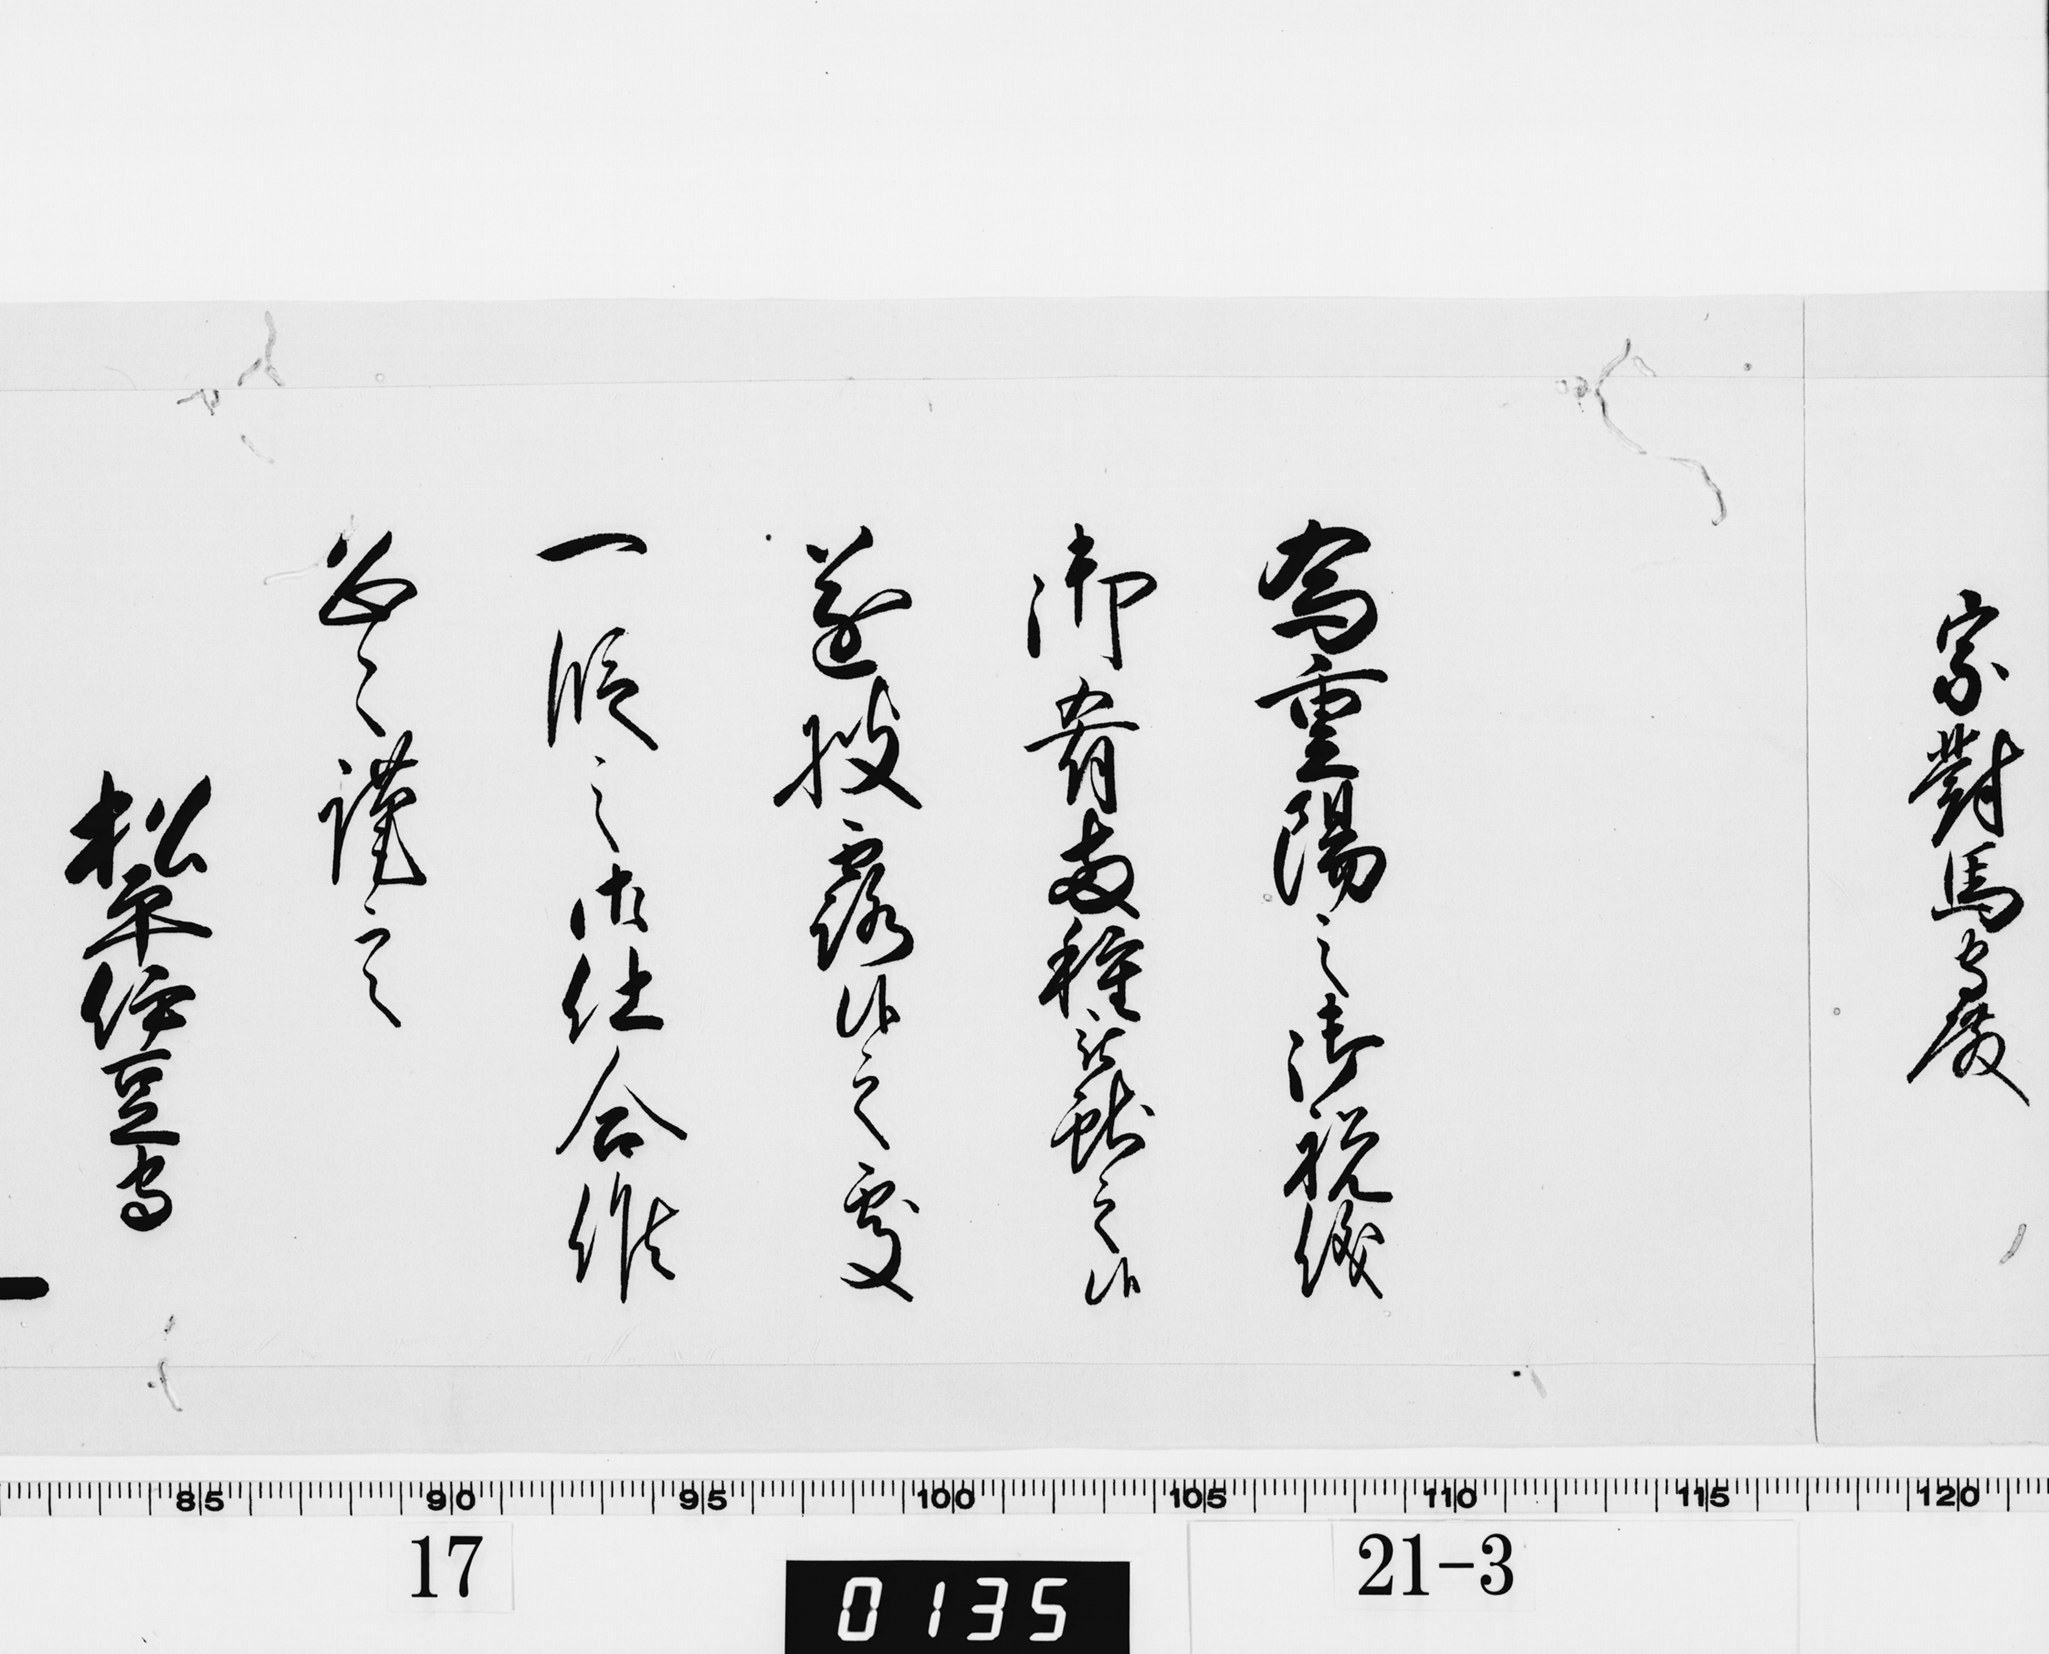 宗對馬守殿
為重陽之御祝儀
御肴兩種被獻之候
遂披露候之處
一段之御仕合候
恐々謹言
松平伊豆守
85 90 95 100 105 110 115 120
17
0135
21-3